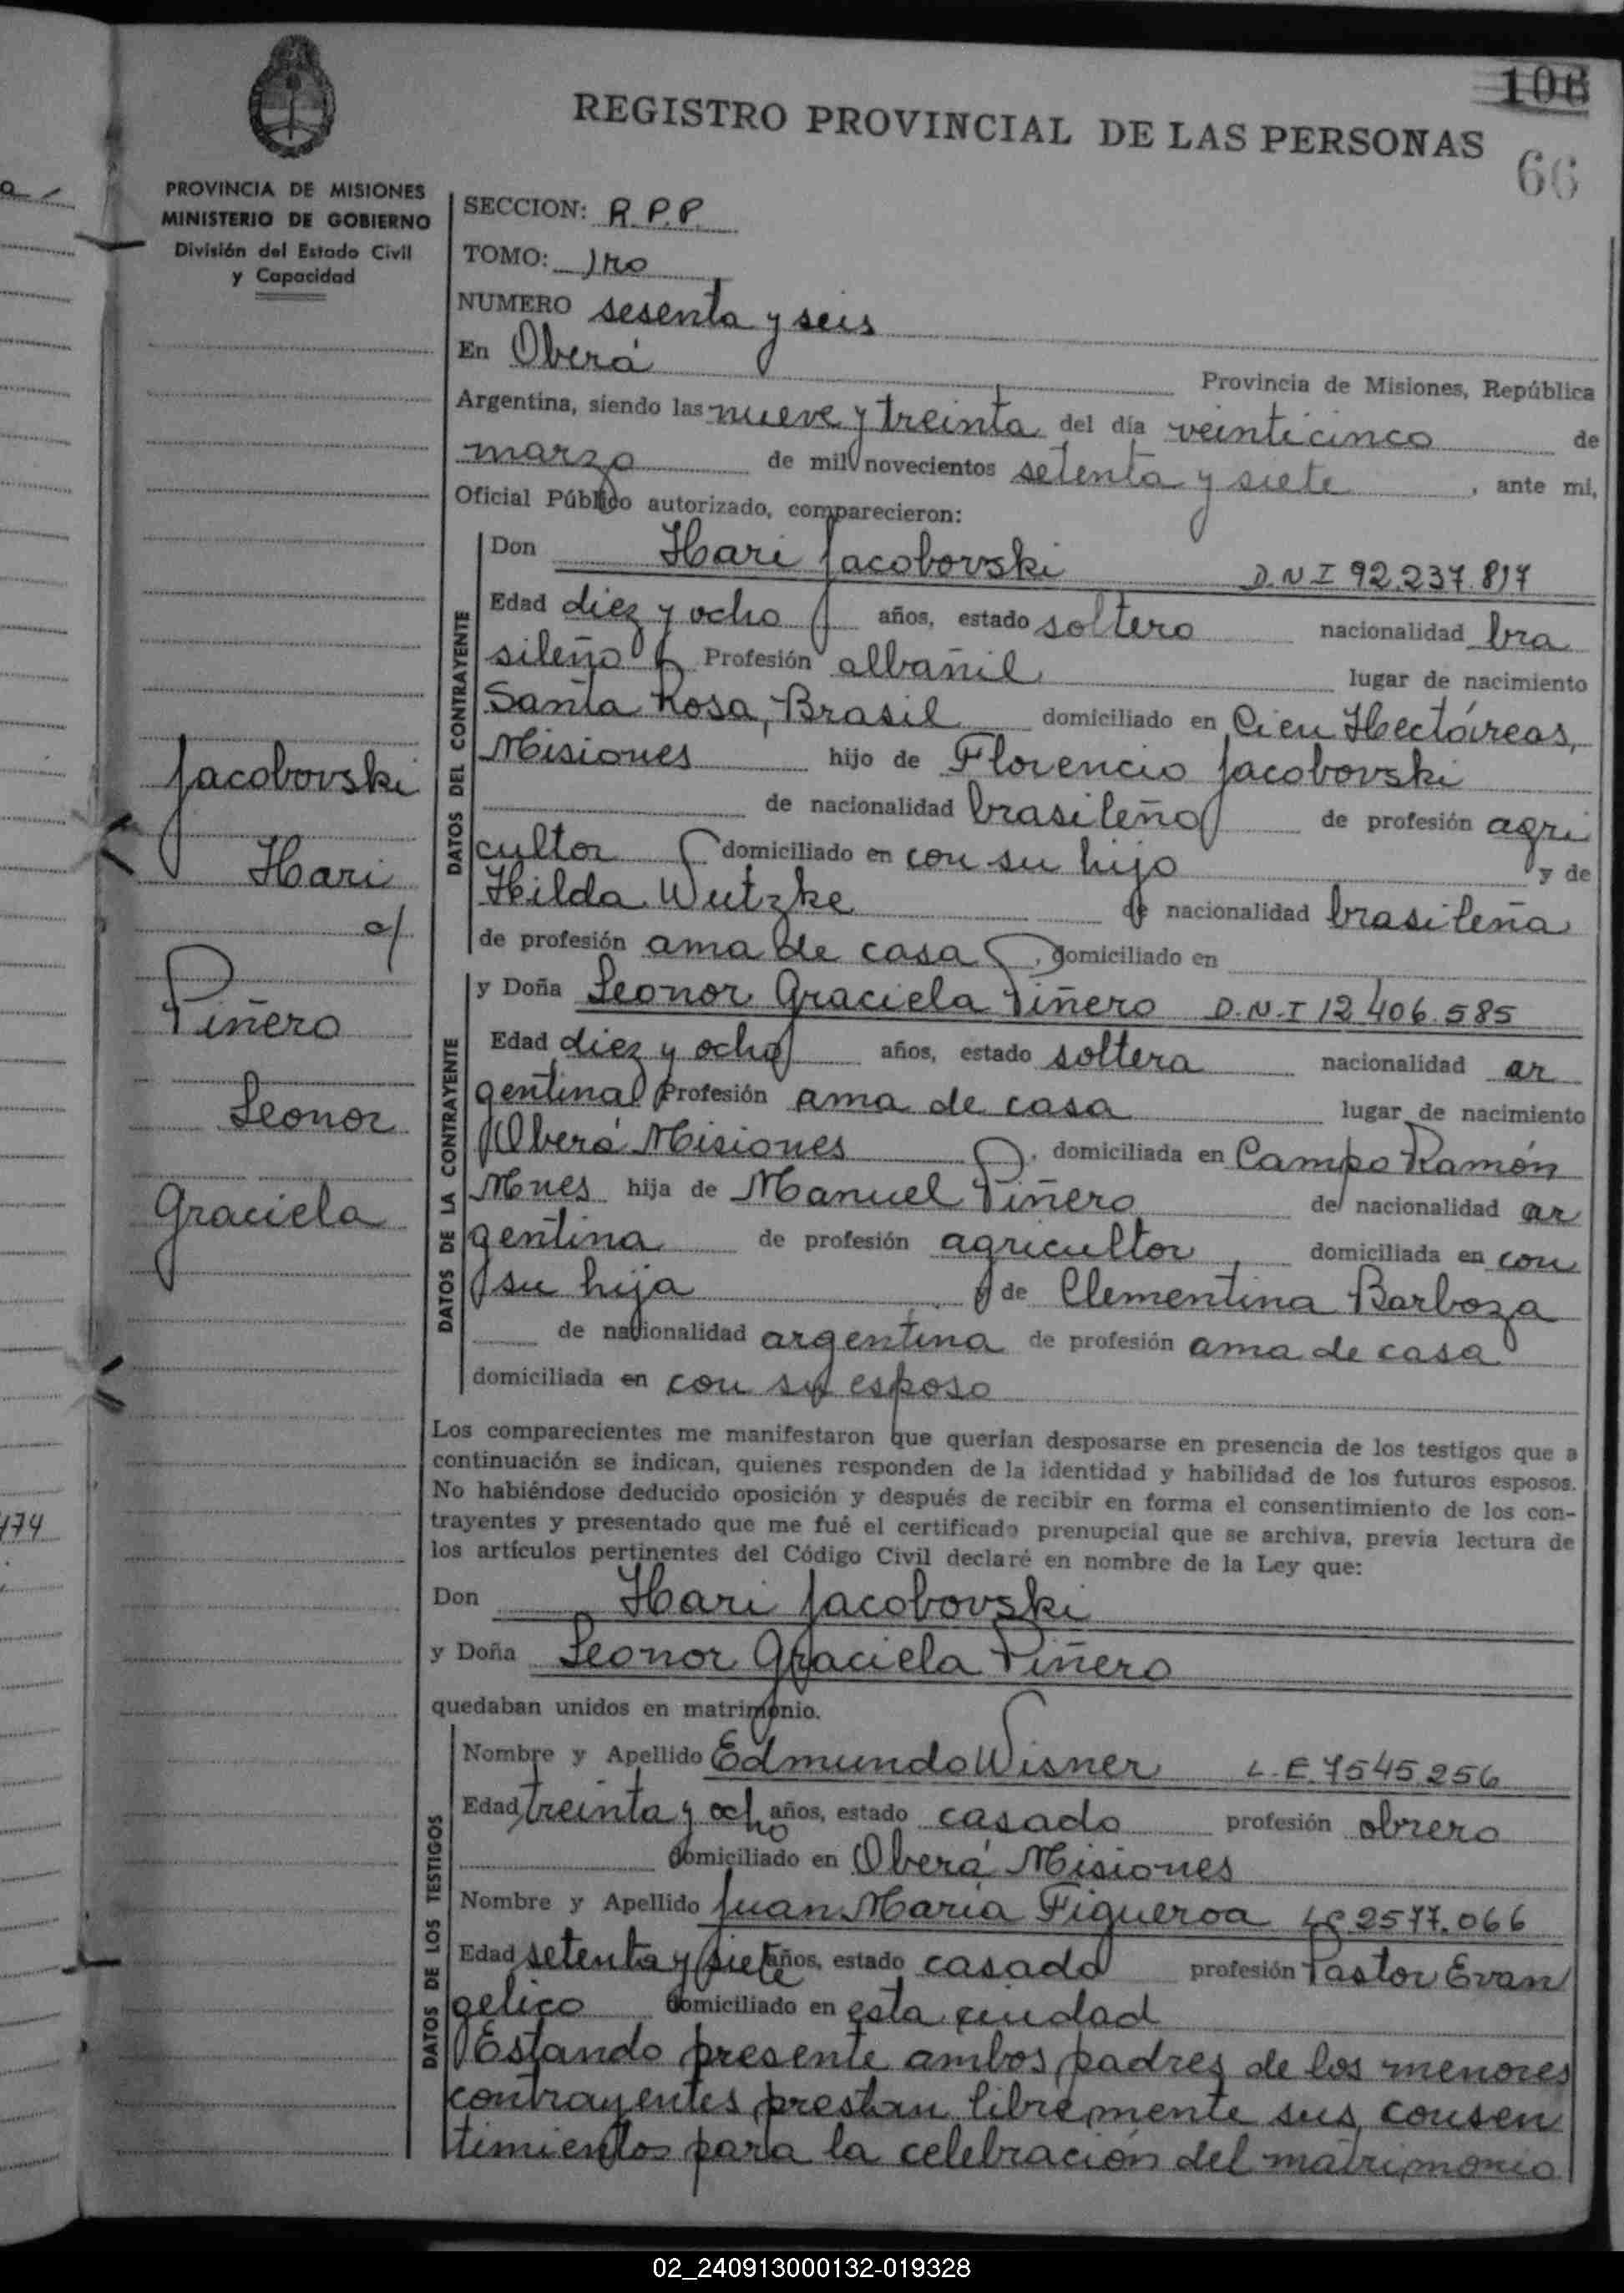 106
REGISTRO PROVINCIAL DE LAS PERSONAS
66
PROVINCIA DE MISIONES
MINISTERIO DE GOBIERNO
División del Estado Civil
y Capacidad
Jacobovski
Hari
c/
Piñero
Leonor
Graciela
174
SECCION: R.P.P.
TOMO: 1ro
NUMERO sesenta y seis
En Oberá Provincia de Misiones, República
Argentina, siendo las nueve y treinta del día veinticinco de
marzo de mil novecientos setenta y siete, ante mi,
Oficial Público autorizado, comparecieron:
DATOS DEL CONTRAYENTE
Don Hari Jacobovski D.N.I 92.237.817
Edad diez y ocho años, estado soltero nacionalidad bra
sileño Profesión albañil lugar de nacimiento
Santa Rosa, Brasil domiciliado en Cien Hectáreas,
Misiones hijo de Florencio Jacobovski
de nacionalidad brasileño de profesión agri
cultor domiciliado en con su hijo y de
Hilda Wutzke de nacionalidad brasileña
de profesión ama de casa, domiciliado en
DATOS DE LA CONTRAYENTE
y Doña Leonor Graciela Piñero D.N.I 12.406.585
Edad diez y ocho años, estado soltera nacionalidad ar
gentina Profesión ama de casa lugar de nacimiento
Oberá Misiones, domiciliada en Campo Ramón
Mnes hija de Manuel Piñero de nacionalidad ar
gentina de profesión agricultor domiciliada en con
su hija y de Clementina Barboza
de nacionalidad argentina de profesión ama de casa
domiciliada en con su esposo
Los comparecientes me manifestaron que querían desposarse en presencia de los testigos que a
continuación se indican, quienes responden de la identidad y habilidad de los futuros esposos.
No habiéndose deducido oposición y después de recibir en forma el consentimiento de los con-
trayentes y presentado que me fué el certificado prenupcial que se archiva, previa lectura de
los artículos pertinentes del Código Civil declaré en nombre de la Ley que:
Don Hari Jacobovski
y Doña Leonor Graciela Piñero
quedaban unidos en matrimonio.
DATOS DE LOS TESTIGOS
Nombre y Apellido Edmundo Wisner L.E. 7545.256
Edad treinta y ocho años, estado casado profesión obrero
domiciliado en Oberá Misiones
Nombre y Apellido Juan María Figueroa 2577.066
Edad setenta y siete años, estado casado profesión Pastor Evan
gelico domiciliado en esta ciudad
Estando presente ambos padres de los menores
contrayentes prestan libremente sus consen
timientos para la celebración del matrimonio
02_240913000132-019328